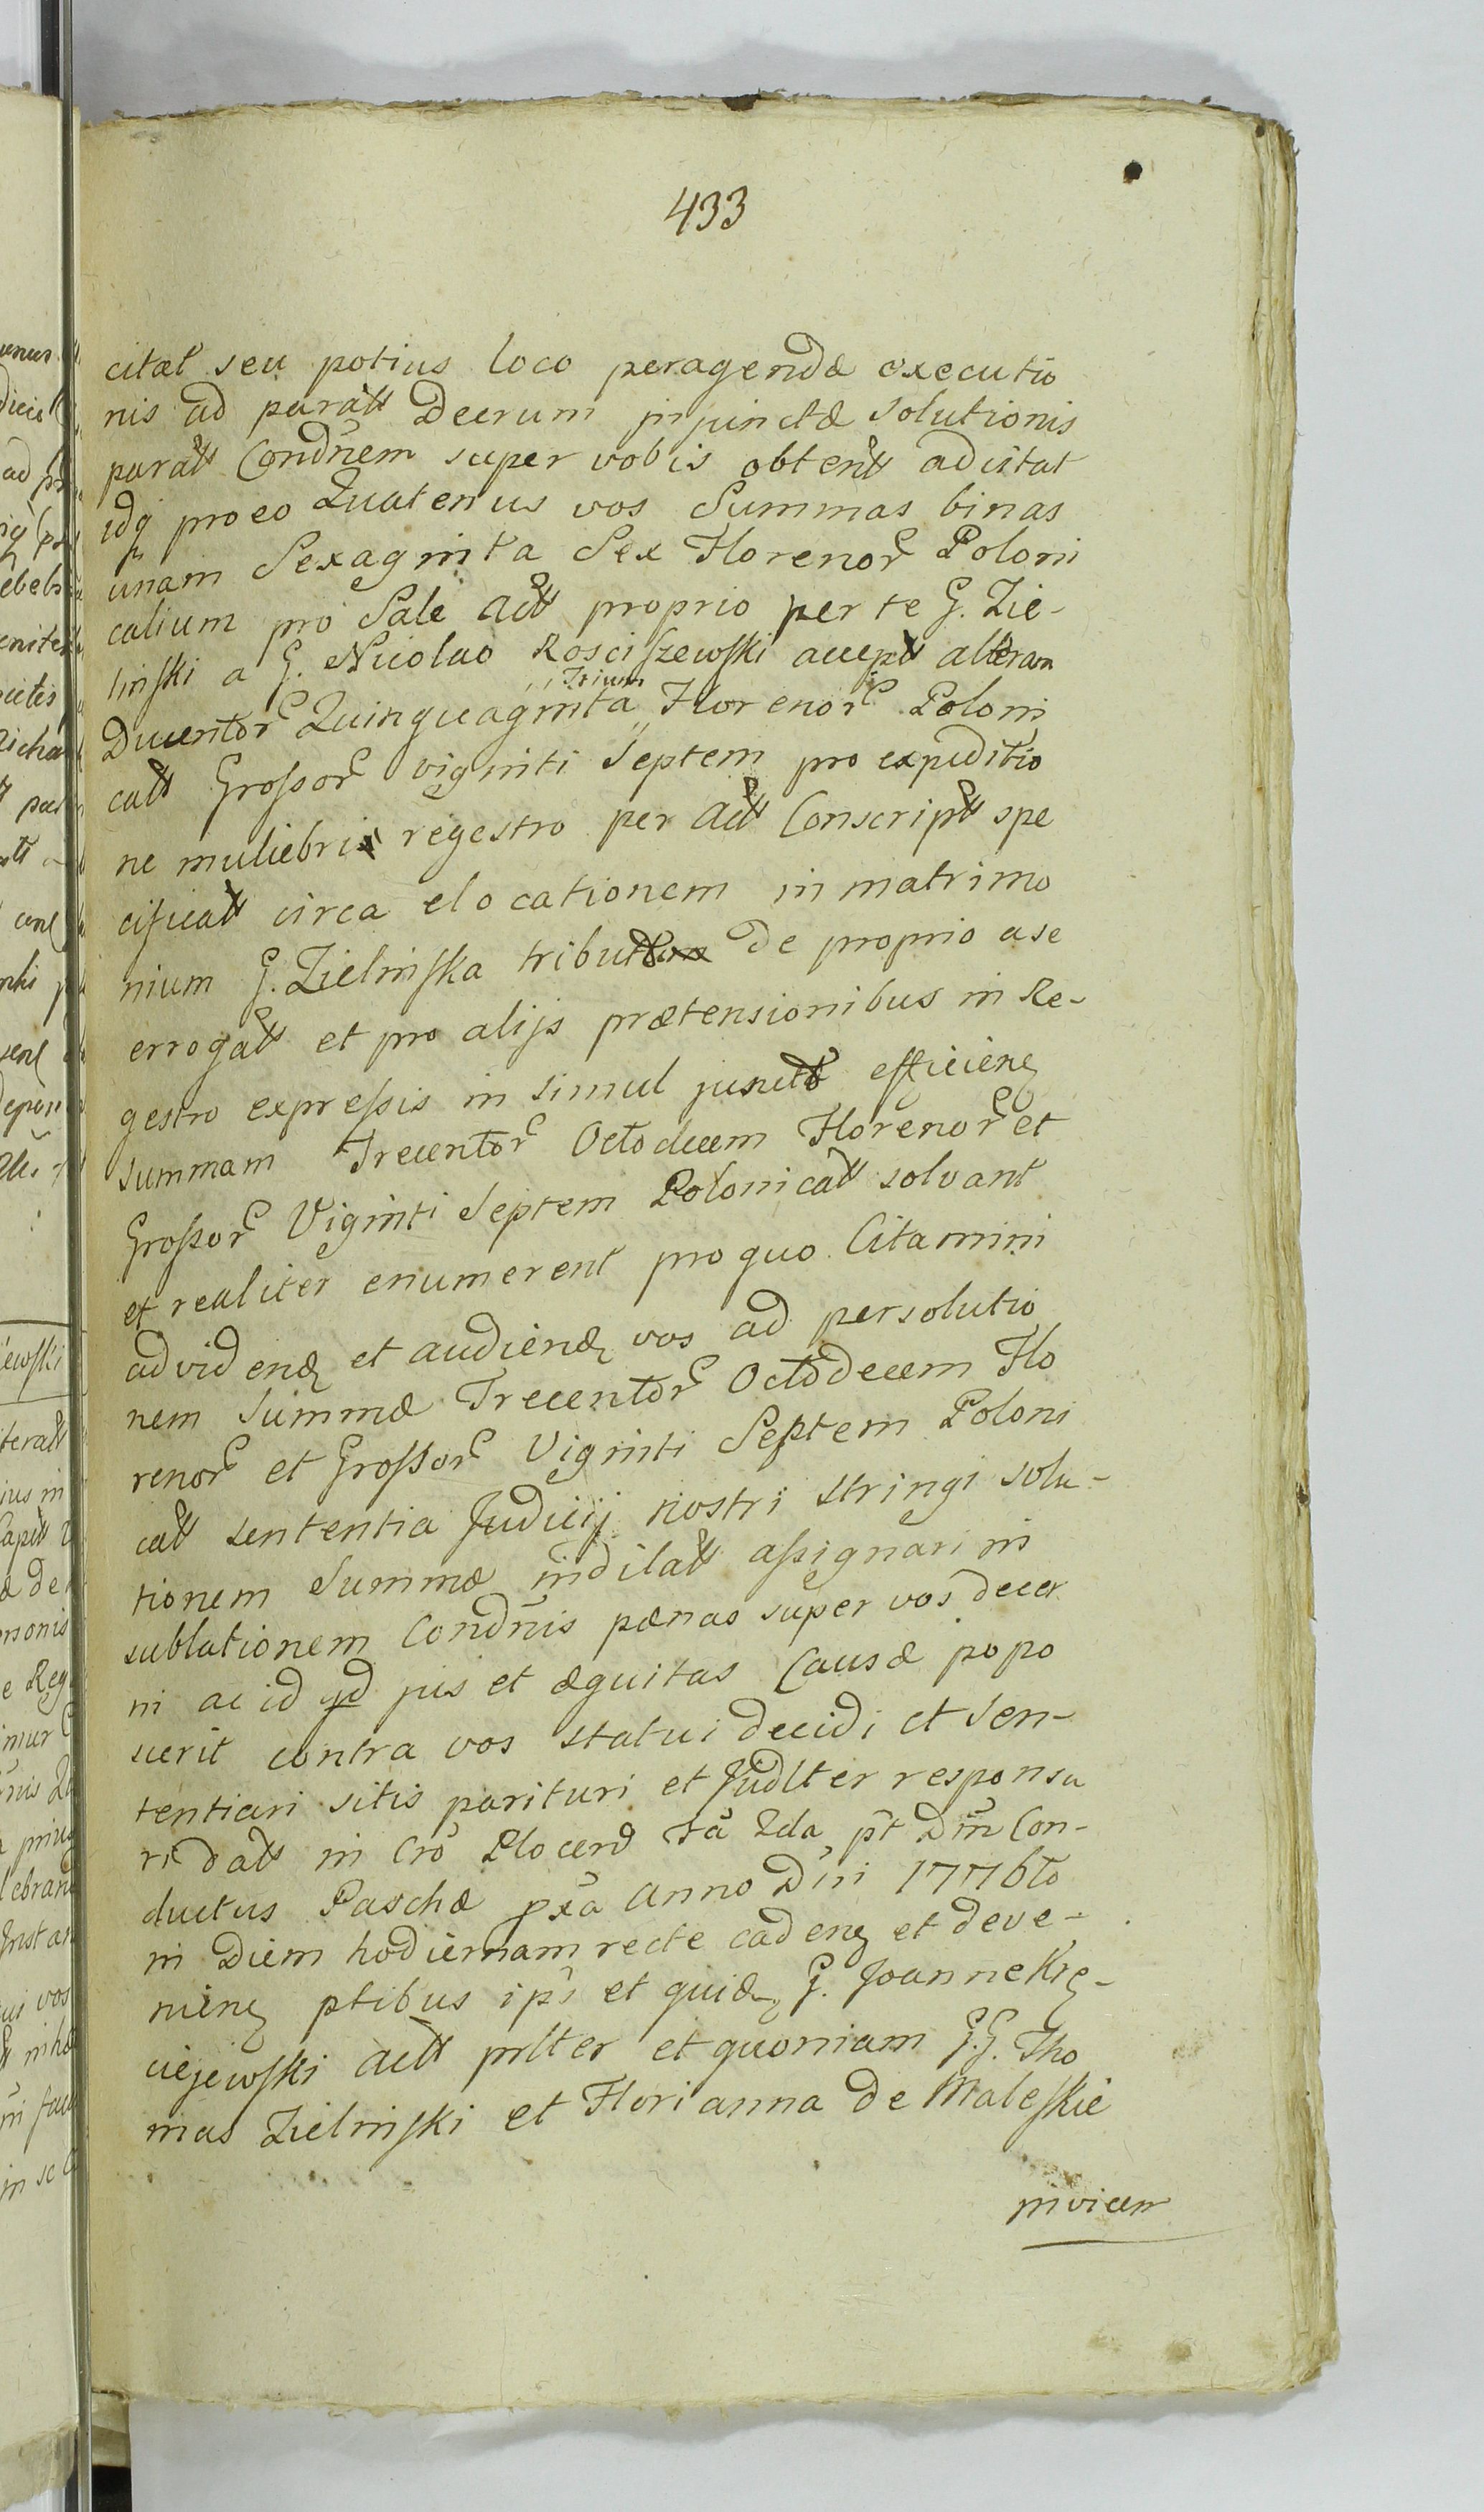 433
citat seu potius loco peragendæ executio
nis ad parатt Decrum injunctæ solutionis
paratt Condñem super vobis obtentt adcitat
idq̃ pro eo Quatenus vos Summas binas
unam Sexaginta Sex Florenor Poloni
calium pro Sale Actt proprio per te G. Zie-
linſki a G. Nicolao Rosciſzewſki accept alteram
Trium
Ducentor Quinquaginta Florenor Poloni
catt Groſsor viginti Septem pro expeditio
ne muliebri regestro per Actt Conscriptt spe
cificatt circa elocationem in matrimo
nium G. Zielinſka tribut de proprio a se
errogatt et pro alijs prætensionibus in Re-
gestro expreſsis in simul junctt efficien
summam Trecentor Octodecem Florenor et
Groſsor Viginti Septem Polonicatt solvant
et realiter enumerent pro quo Citamini
ad viden et audien vos ad persolutio
nem Summæ Trecentor Octodecem Flo
renor et Groſsor Viginti Septem Poloni
catt sententia Judicij nostri stringi solu-
tionem Summæ indilatt aſsignari in
sublationem Condñis pænas super vos decer
ni ac id qd jus et æquitas Causæ popo
scerit contra vos statui decidi et sen-
tentiari sitis parituri et Judlter responsu
ri Datt in Cro Plocen fa 2da pt Dm Con-
ductus Paschæ pxa Anno Dni 1776to
in Diem hodiernam recte caden et deve-
nien ptibus ips et quid G. Joanne Kie-
ciejewſki Actt prlter et quoniam G.G. Tho
mas Zielinſki et Florianna de Maleſkie
invicem